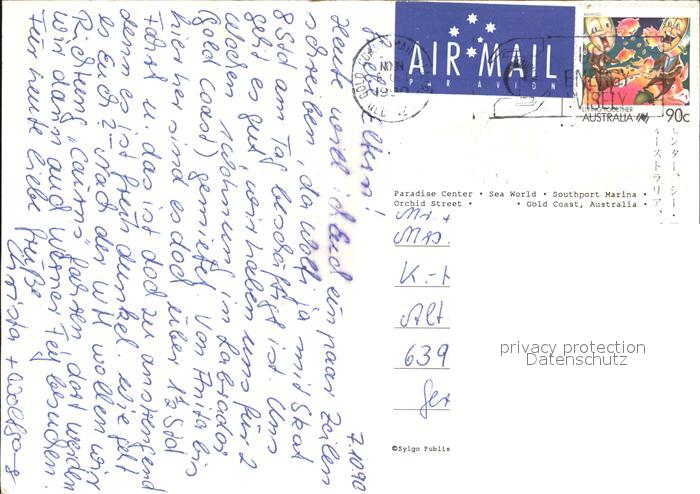 7.10.90
Liebe Eltern!
Heute will ich Euch ein paar Zeilen
schreiben, da Wolfi ja mit Skat
8 Std am Tag beschäftigt ist. Uns
geht es gut, wir haben uns für 2
Wochen 1 Wohnung in Labrador
(Gold Coast) gemietet. Von Anita bis
hier her sind es doch über 1½ Std
Fahrt u. das ist doch zu anstrengend
denn es ist früh dunkel. Wie geht
es Euch? – Nach der WM wollen wir
Richtung "Cairns" fahren, dort werden
wir dann auch Werner Teig besuchen.
Für heute liebe Grüße
Christa + Wolfgang
AIR MAIL
PAR AVION
GOLD COAST
NOON
1990
ENERGY
WISELY
LIVING TOGETHER
AUSTRALIA 90c
センター、シー・
ーストラリア。
Paradise Center • Sea World • Southport Marina •
Orchid Street • • Gold Coast, Australia •
Mr. +
Mrs.
K.-H
Alt
639
Ger
©Sylgo Publis
privacy protection
Datenschutz